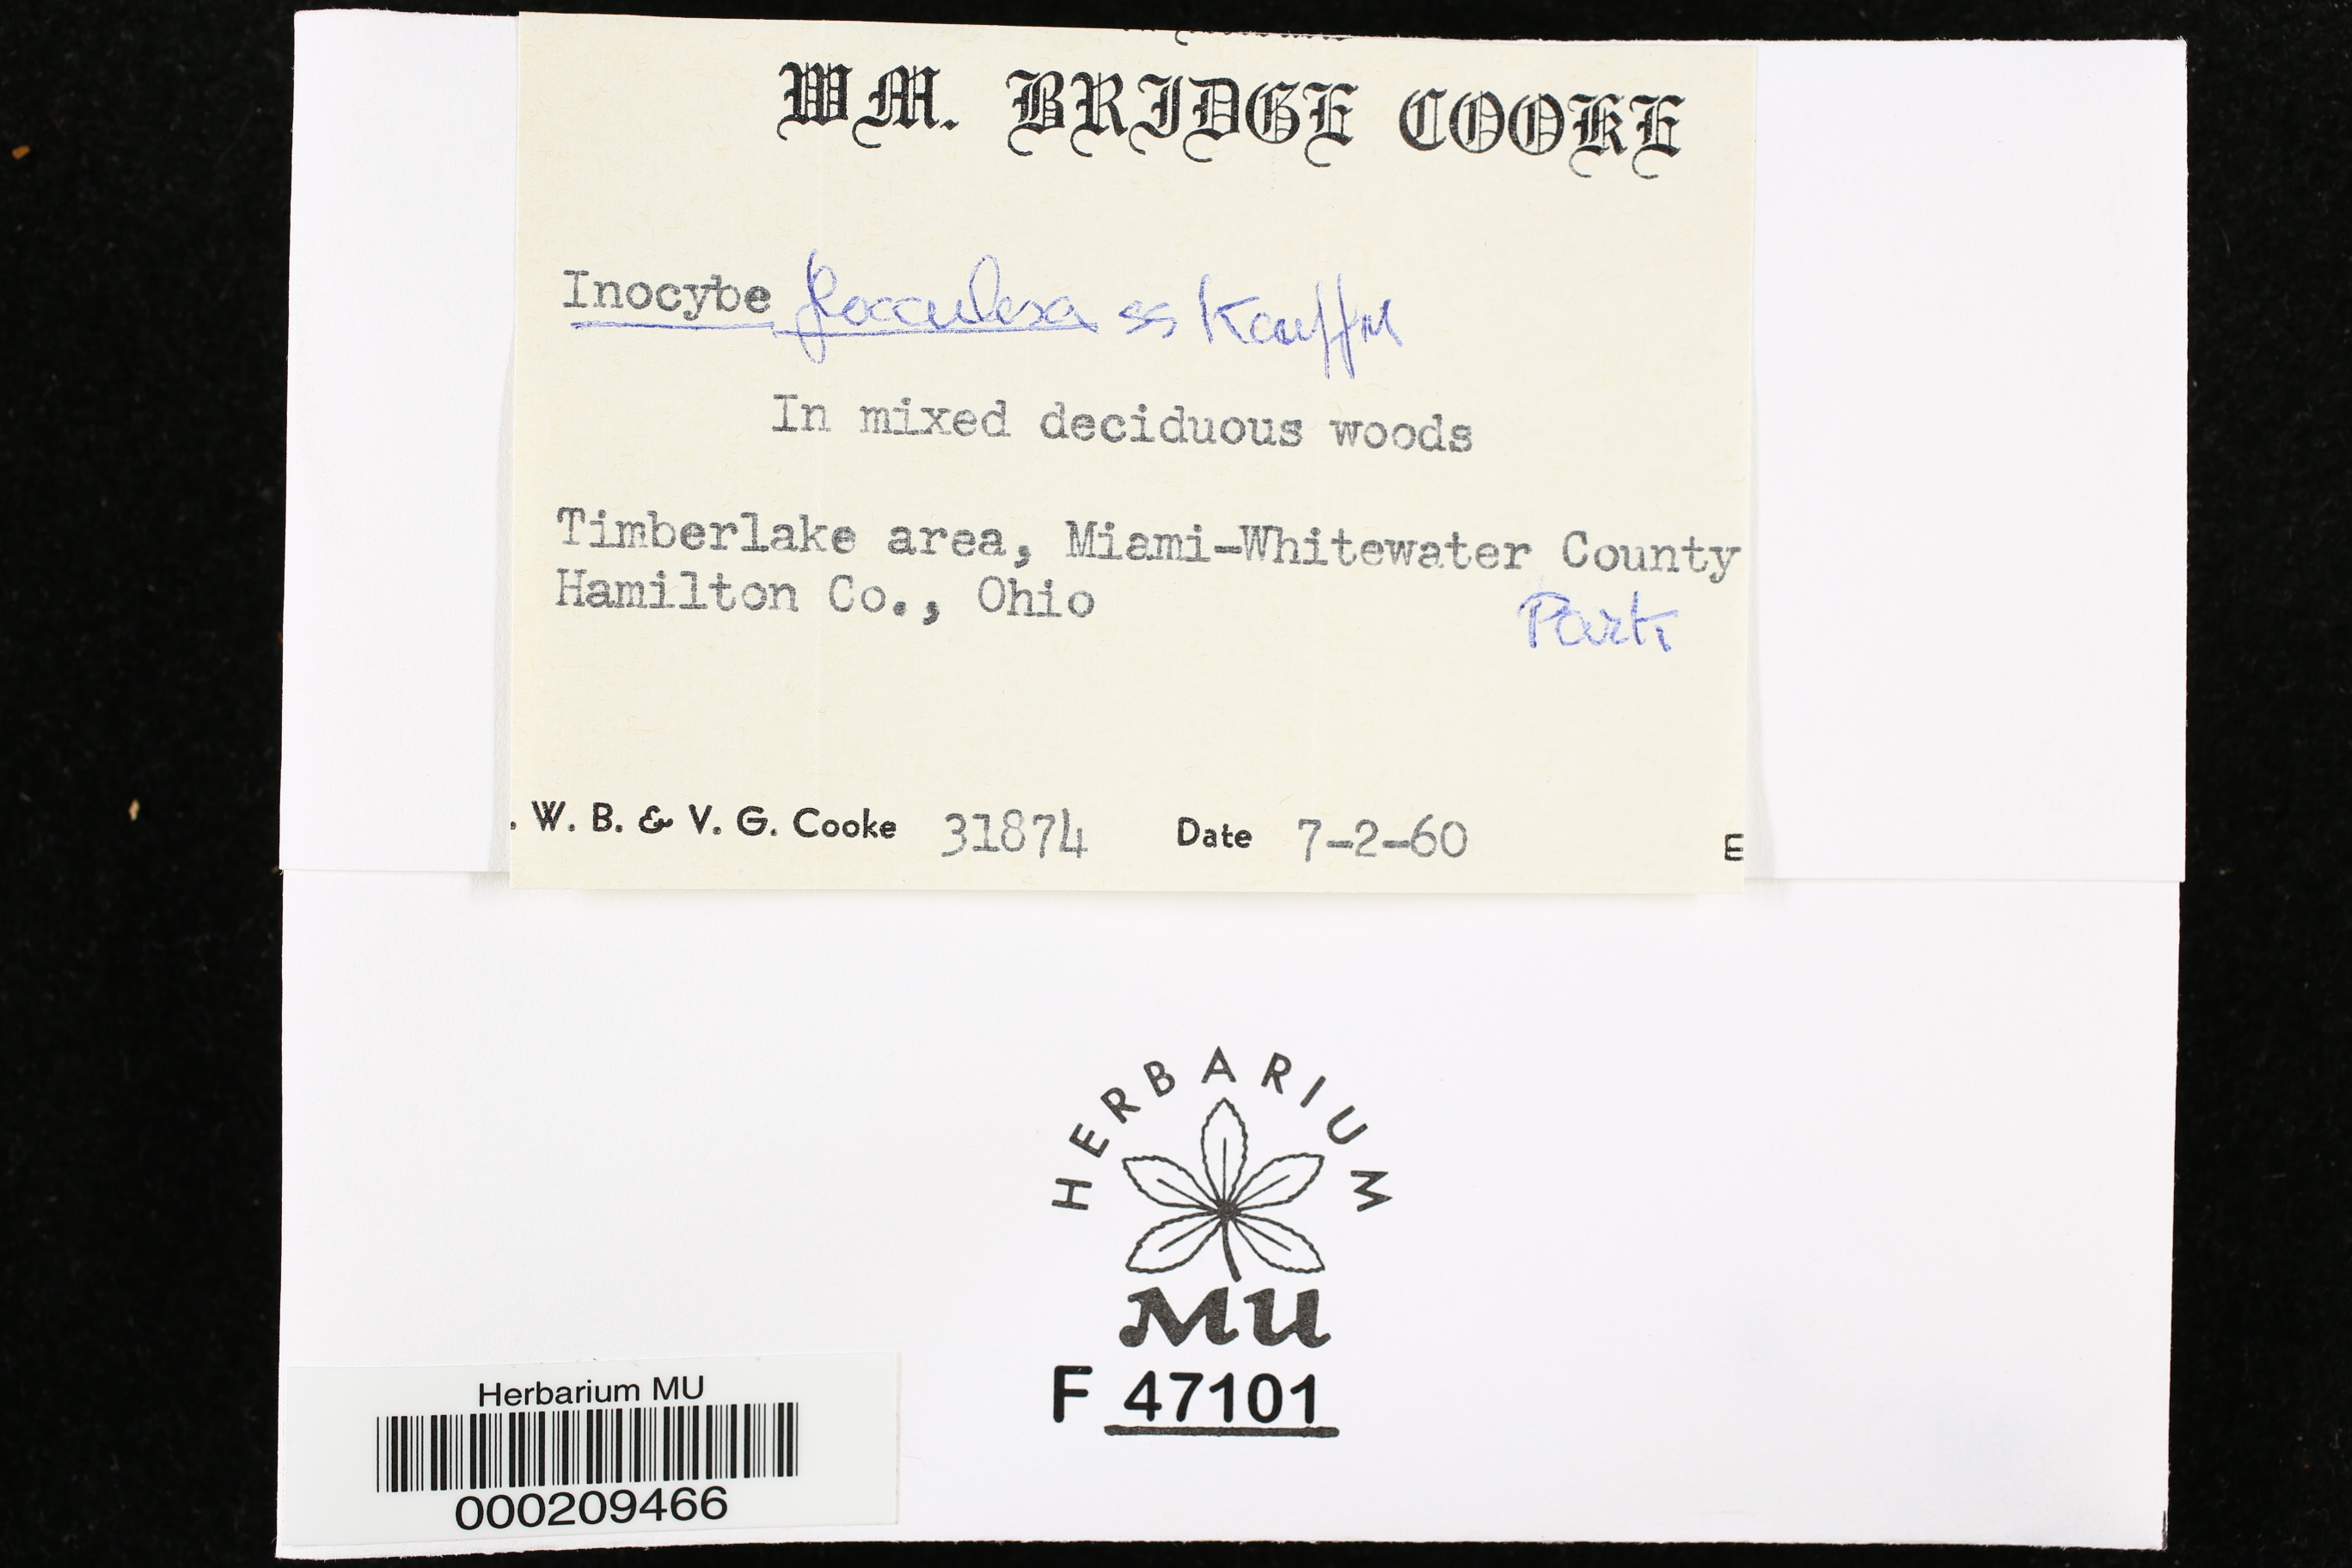 WM. BRIDGE COOKE
Inocybe flocculosa ss Kauffm
In mixed deciduous woods
Timberlake area, Miami-Whitewater County
Park
Hamilton Co., Ohio
. W. B. & V. G. Cooke 31874 Date 7-2-60 E
HERBARIUM
MU
F 47101
Herbarium MU
000209466